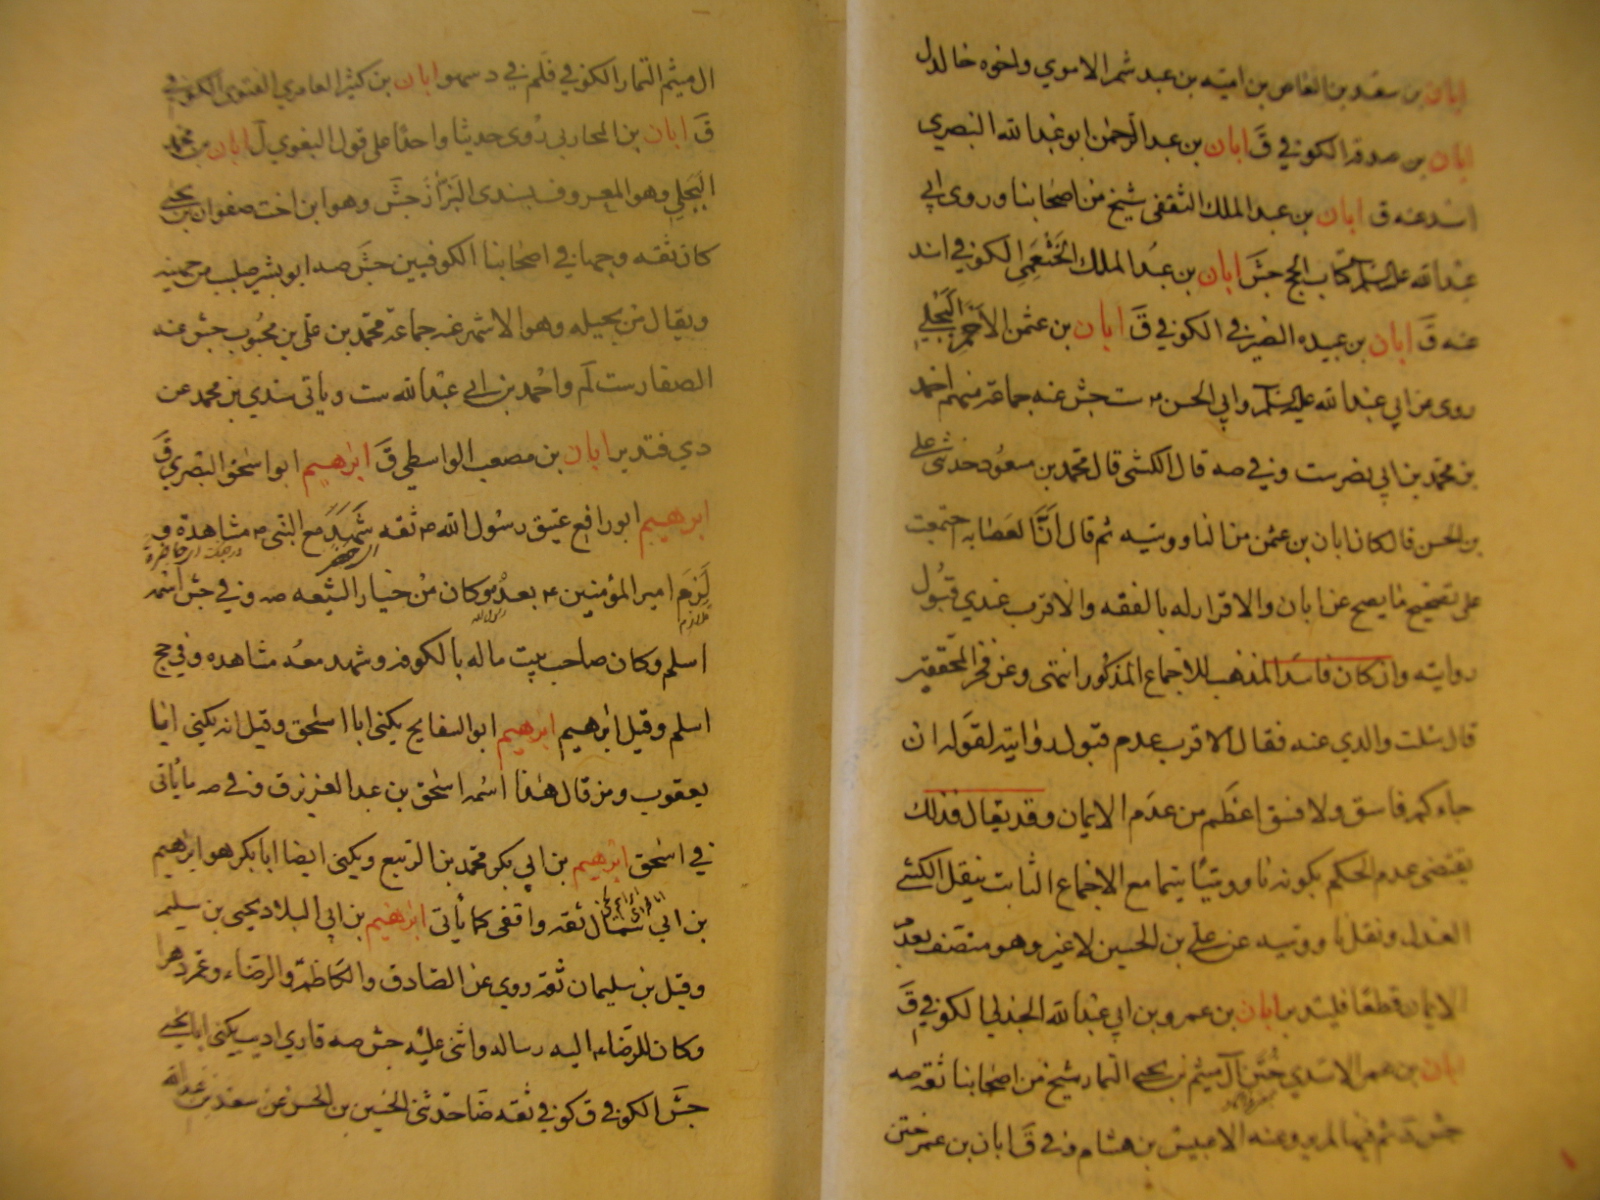 ابان بن سعيد بن العاص بن اميه بن عبد شمس الاموي واخوه خالد ل
ابان بن صدقه الكوفي ق ابان بن عبد الرحمن ابو عبد الله البصري
اسند عنه ق ابان بن عبد الملك الثقفي شيخ من اصحابنا وروى ابي
عبد الله عليه السلام كتاب الحج جش ابان بن عبد الملك الخثعمي الكوفي اسند
عنه ق ابان بن عبيده الصيرفي الكوفي ق ابان بن عثمن الاحمر البجلي
روى عن ابي عبد الله عليه السلام وابي الحسن ست جش عنه جماعة منهم احمد
بن محمد بن ابي نصر ست وفي صه قال الكشي قال محمد بن مسعود حدثني علي
بن الحسن قال كان ابان بن عثمن من الناووسيه ثم قال ان العصابه اجتمعت
على تصحيح ما يصح عن ابان والاقرار له بالفقه والاقرب عندي قبول
روايته وان كان فاسد المذهب للاجماع المذكور انتهى وعن فخر المحققين
قال سئلت والدي عنه فقال الاقرب عدم قبول روايته لقوله ان
جاءكم فاسق ولا فسق اعظم من عدم الايمان وقد يقال فذلك
يقتضى عدم الحكم بكونه ناووسيا سيما مع الاجماع الثابت بنقل الكشي
العدل ونقل ناووسيه عن علي بن الحسين لا غير وهو متصف بعدم
الايمان قطعا فليتدبر ابان بن عمرو بن ابي عبد الله الجدلي الكوفي ق
ابان بن عمر الاسدي ختن آل ميثم بن يحيى التمار شيخ من اصحابنا ثقه صه
جش عنه الا عبيس بن هشام وفي ق ابان بن عمر ختن
ال ميثم التمار الكوفي فلم في د سهو ابان بن كثير العامري الغنوي الكوفي
ق ابان بن المحاربي روى حديثا واحدا على قول البغوي ل ابان بن محمد
البجلي وهو المعروف بسندى البزاز جش وهو ابن اخت صفوان بن يحيى
كان ثقه وجها في اصحابنا الكوفيين جش صه ابو بشر صليب من جهينه
ويقال من بجيله وهو الاشهر عنه جماعة محمد بن علي بن محبوب جش عنه
الصفار ست لم واحمد بن ابي عبد الله ست وياتي سندي بن محمد عن
دي فتدبر ابان بن مصعب الواسطي ق ابرهيم ابو اسحق البصري ق
ابرهيم ابو رافع عتيق رسول الله ص ثقه شهد مع النبي ص مشاهده و
لزم امير المؤمنين ع بعده وكان من خيار الشيعه صه وفي جش اسمه
ملازم
اسلم وكان صاحب بيت ماله بالكوفه وشهد معه مشاهده وفي جج
اسلم وقيل ابرهيم ابرهيم ابو السفايج يكنى ابا اسحق وقيل انه يكنى ابا
يعقوب ومن قال هذا اسمه اسحق بن عبد العزيز ق وفي صه ما يأتي
في اسحق ابرهيم بن ابي بكر محمد بن الربيع ويكنى ايضا ابا بكر هو ابرهيم
بن ابي سمال ثقه واقفى كما يأتى ابرهيم بن ابي البلاد يحيى بن سليم
وقيل بن سليمان ثقه روى عن الصادق والكاظم والرضا وعمر دهرا
وكان للرضا اليه رسالة واثنى عليه جش صه قاري اديب يكنى ابا يحيى
جش الكوفي ق كوفي ثقه ضا حدثنى الحسين بن الحسن عن سعد بن عبد الله